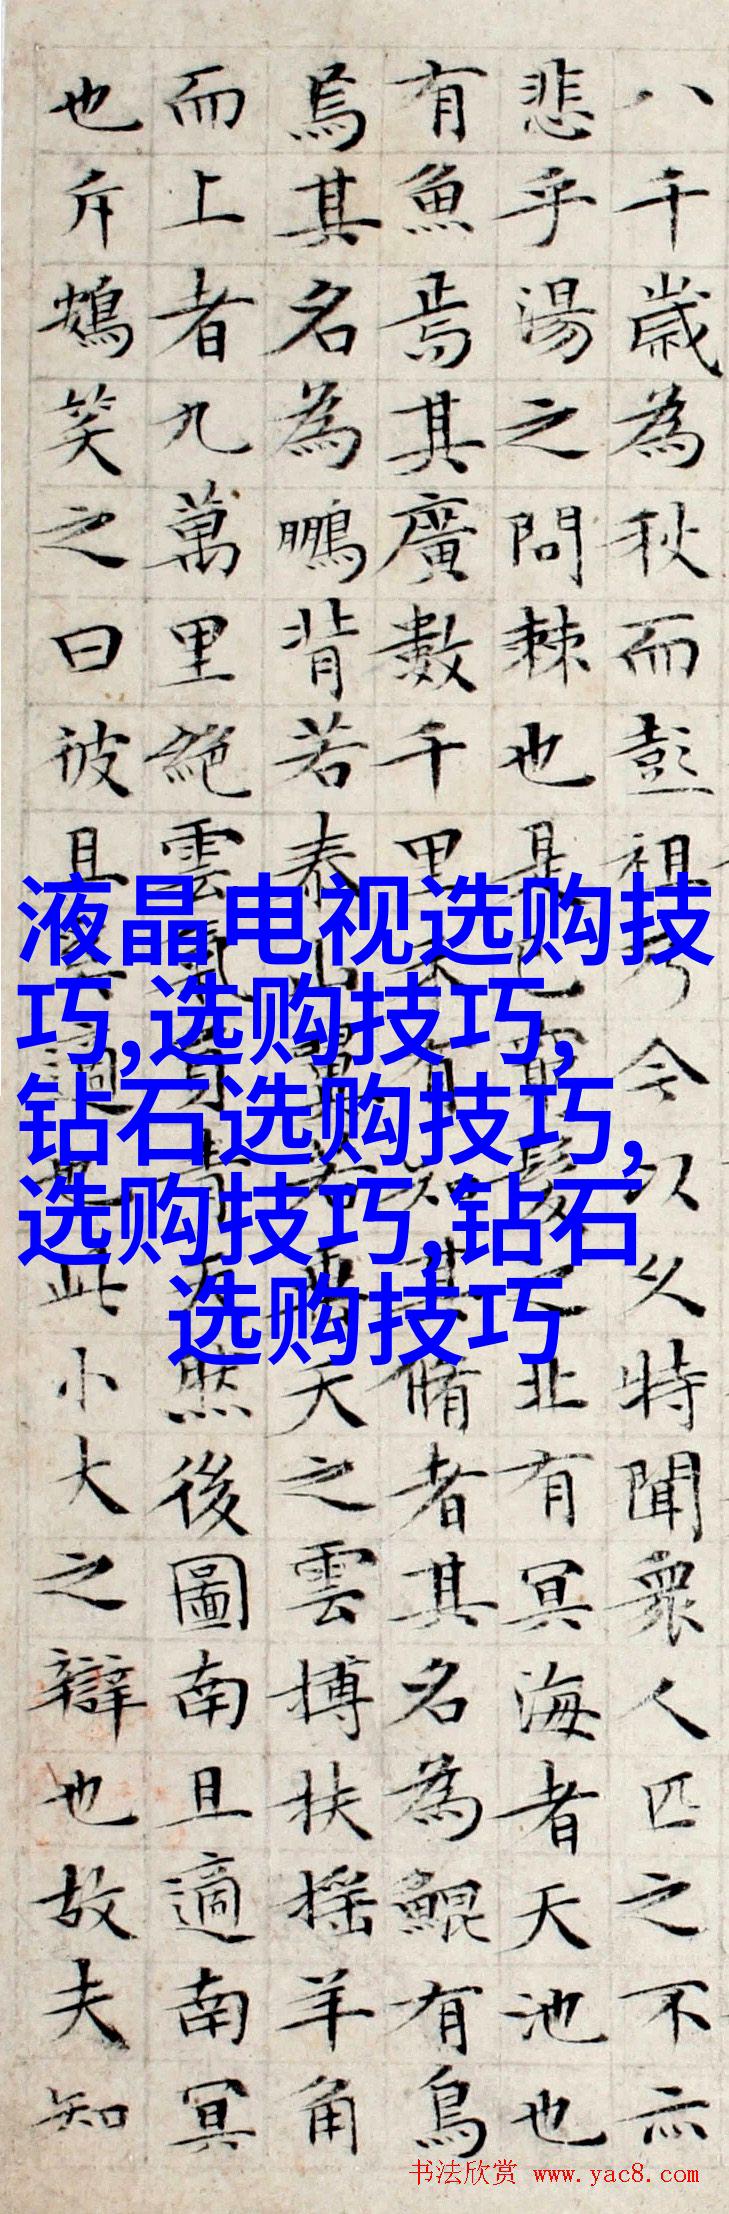 八千歲為秋而彭祖乃今以久特聞衆人匹之不亦
悲乎湯之問棘也是已窮髮之北有冥海者天池也
有魚焉其廣數千里未有知其脩者其名為鯤有鳥
焉其名為鵬背若泰山翼若垂天之雲搏扶搖羊角
而上者九萬里絶雲氣負青天然後圖南且適南冥
也斥鴳笑之曰彼且奚適也此小大之辯也故夫知
液晶电视选购技
巧,选购技巧,
钻石选购技巧,
选购技巧,钻石
选购技巧
书法欣赏 www.yac8.com